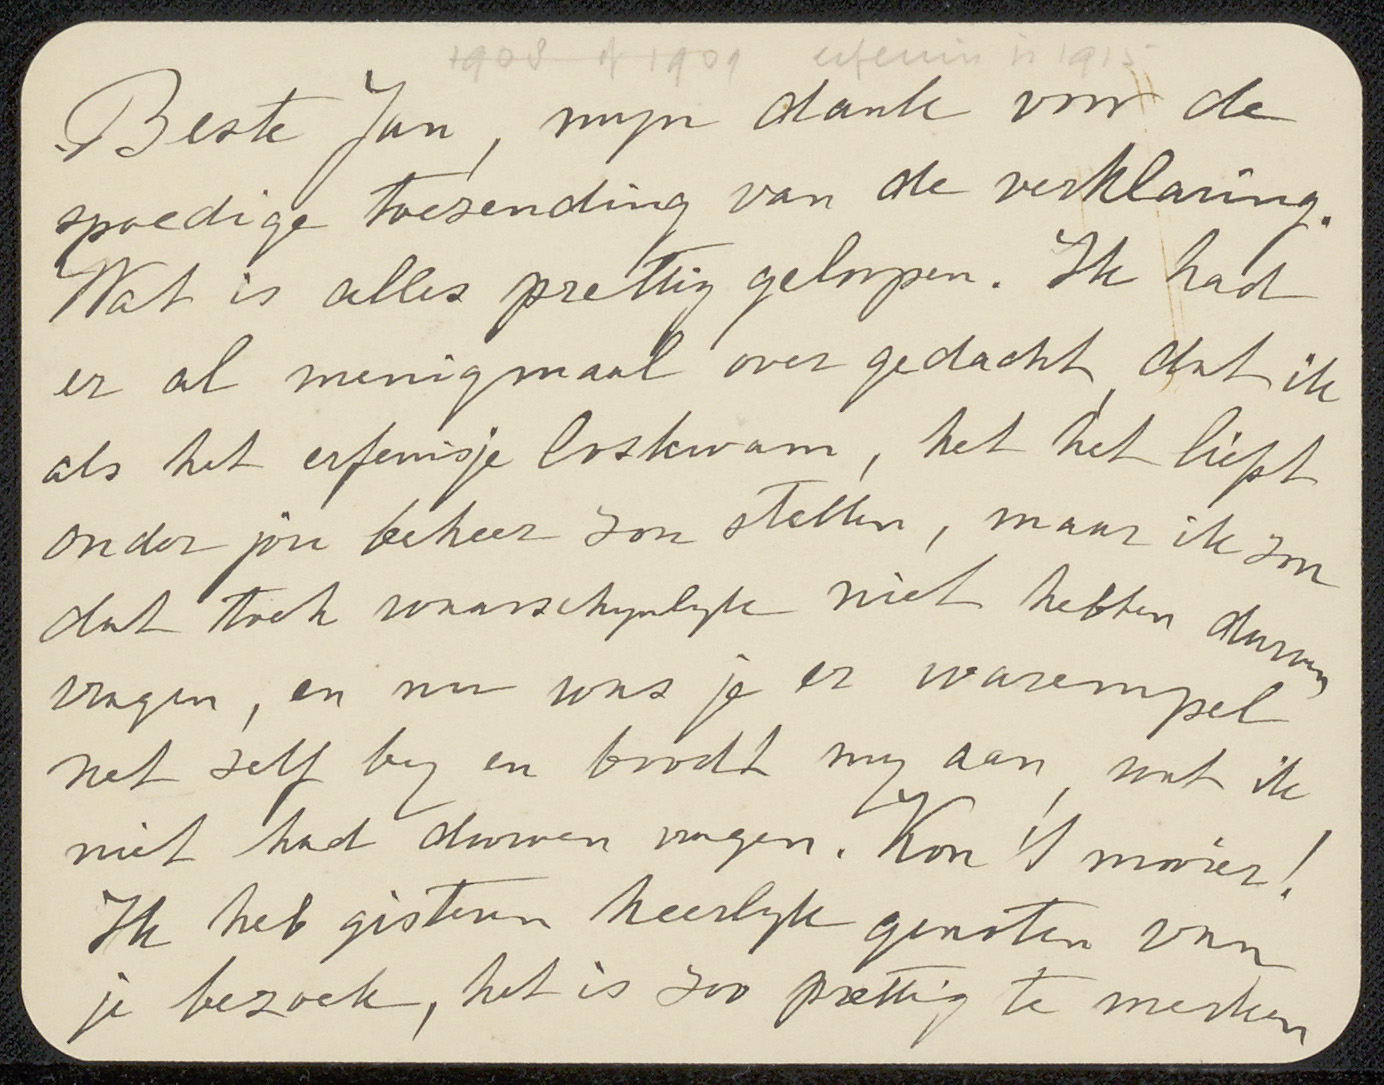 1908 of 1909 erfenis is 1915
Beste Jan, mijn dank voor de
spoedige toezending van de verklaring.
Wat is alles prettig geloopen. Ik had
er al menigmaal over gedacht, dat ik
als het erfenisje loskwam, het het liefst
onder jou beheer zou stellen, maar ik zou
dat toch waarschynlyk niet hebben durven
vragen, en nu was je er warempel
net zelf by en boodt my aan, wat ik
niet had durven vragen. Kon 't mooier!
Ik heb gisteren heerlyk genoten van
je bezoek, het is zoo prettig te merken